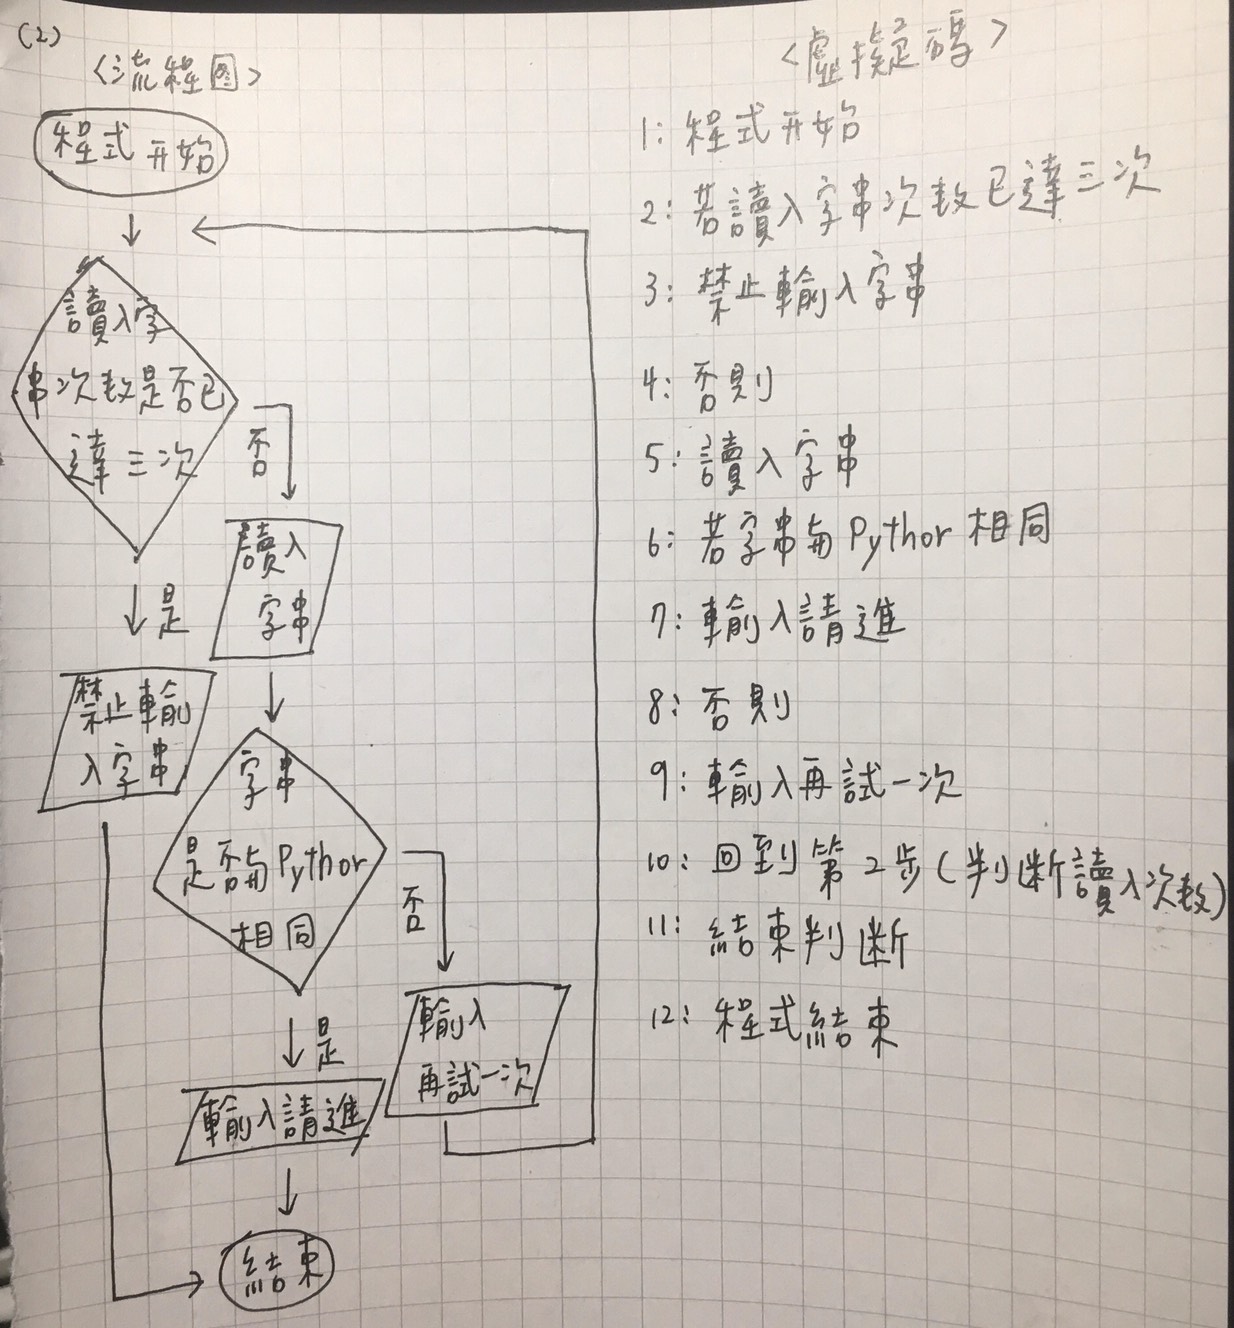 (2)
<流程図>
程式開始
讀入字
串次数是否已
達三次
否
讀入
字串
是
禁止輸
入字串
字串
是否与Pythor
相同
否
輸入
再試一次
是
輸入請進
結束
<虛擬碼>
1: 程式開始
2: 若讀入字串次数已達三次
3: 禁止輸入字串
4: 否則
5: 讀入字串
6: 若字串与Pythor相同
7: 輸入請進
8: 否則
9: 輸入再試一次
10: 回到第2步(判断讀入次数)
11: 結束判断
12: 程式結束